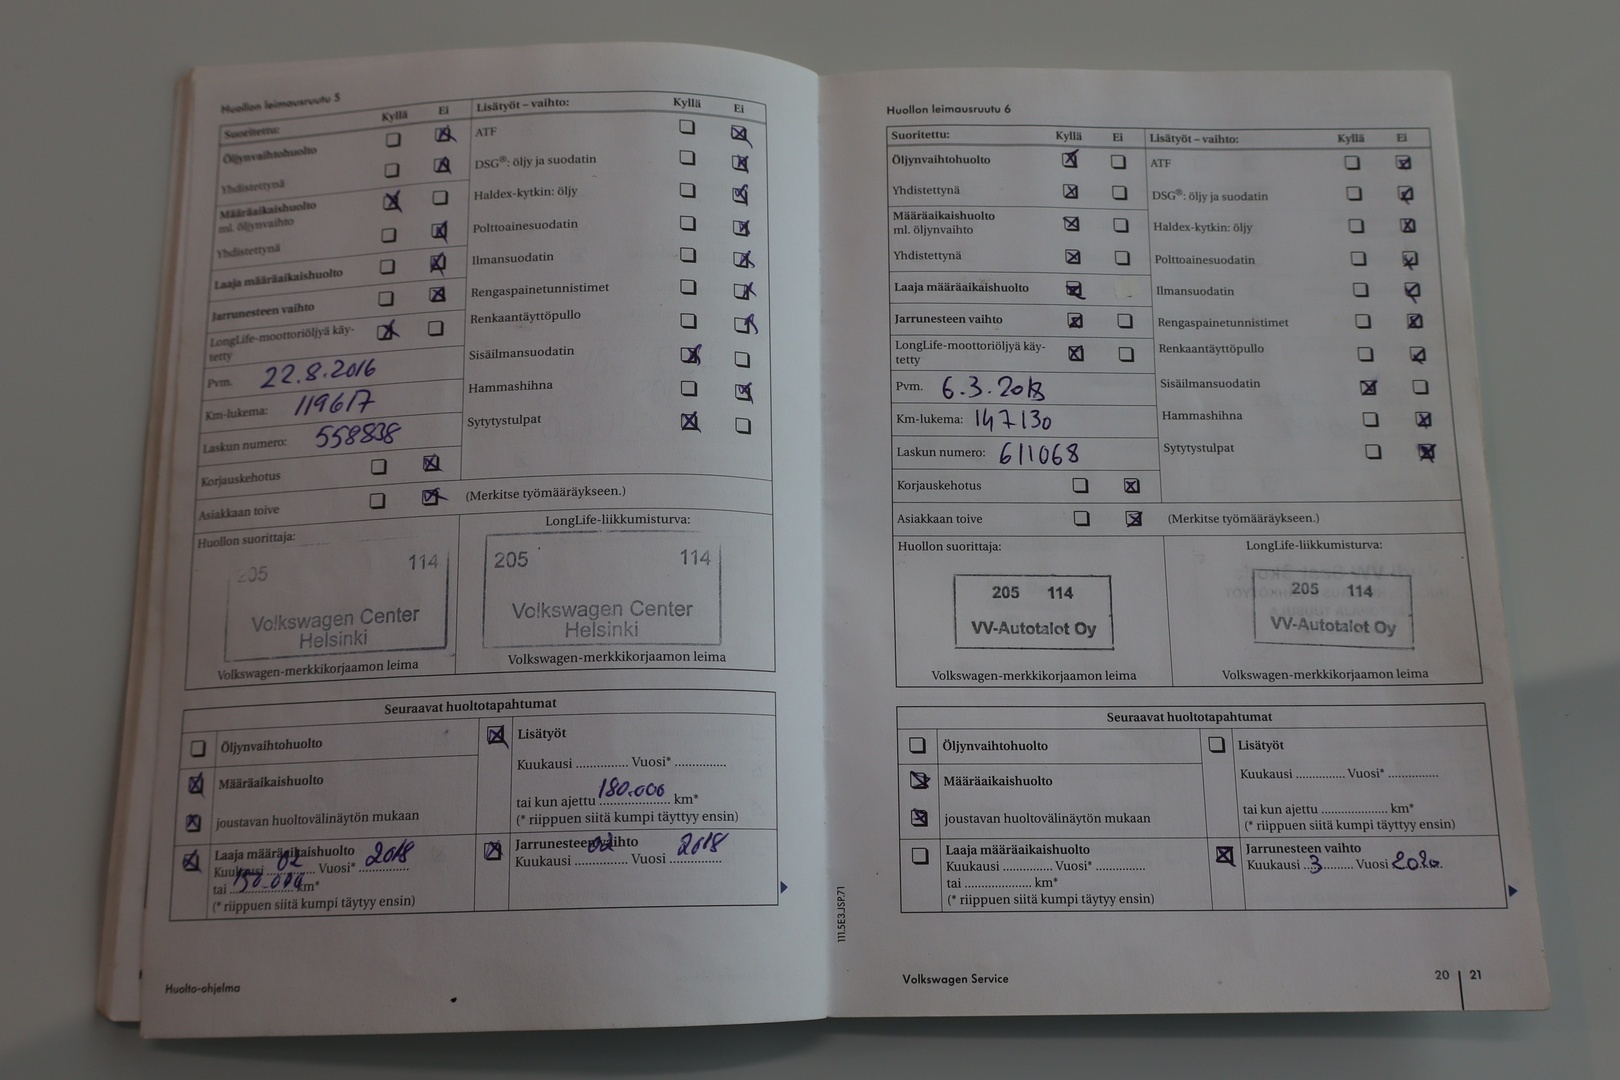 Huollon leimausruutu 5
Suoritettu: Kyllä Ei Lisätyöt – vaihto: Kyllä Ei
Öljynvaihtohuolto ATF
Yhdistettynä DSG®: öljy ja suodatin
Määräaikaishuolto Haldex-kytkin: öljy
ml. öljynvaihto
Yhdistettynä Polttoainesuodatin
Laaja määräaikaishuolto Ilmansuodatin
Jarrunesteen vaihto Rengaspainetunnistimet
LongLife-moottoriöljyä käy- Renkaantäyttöpullo
tetty
Pvm. 22.8.2016 Sisäilmansuodatin
Km-lukema: 119617 Hammashihna
Laskun numero: 558838 Sytytystulpat
Korjauskehotus
Asiakkaan toive (Merkitse työmääräykseen.)
Huollon suorittaja: LongLife-liikkumisturva:
205 114 205 114
Volkswagen Center Volkswagen Center
Helsinki Helsinki
Volkswagen-merkkikorjaamon leima Volkswagen-merkkikorjaamon leima
Seuraavat huoltotapahtumat
Öljynvaihtohuolto Lisätyöt
Määräaikaishuolto Kuukausi .............. Vuosi* ..............
joustavan huoltovälinäytön mukaan tai kun ajettu 180.000 km*
(* riippuen siitä kumpi täyttyy ensin)
Laaja määräaikaishuolto Jarrunesteen vaihto
Kuukausi 02 Vuosi* 2018 Kuukausi 02 Vuosi 2018
tai 150.000 km*
(* riippuen siitä kumpi täytyy ensin)
Huolto-ohjelma
Huollon leimausruutu 6
Suoritettu: Kyllä Ei Lisätyöt – vaihto: Kyllä Ei
Öljynvaihtohuolto ATF
Yhdistettynä DSG®: öljy ja suodatin
Määräaikaishuolto Haldex-kytkin: öljy
ml. öljynvaihto
Yhdistettynä Polttoainesuodatin
Laaja määräaikaishuolto Ilmansuodatin
Jarrunesteen vaihto Rengaspainetunnistimet
LongLife-moottoriöljyä käy- Renkaantäyttöpullo
tetty
Pvm. 6.3.2018 Sisäilmansuodatin
Km-lukema: 147130 Hammashihna
Laskun numero: 611068 Sytytystulpat
Korjauskehotus
Asiakkaan toive (Merkitse työmääräykseen.)
Huollon suorittaja: LongLife-liikkumisturva:
205 114 205 114
VV-Autotalot Oy VV-Autotalot Oy
Volkswagen-merkkikorjaamon leima Volkswagen-merkkikorjaamon leima
Seuraavat huoltotapahtumat
Öljynvaihtohuolto Lisätyöt
Määräaikaishuolto Kuukausi .............. Vuosi* ..............
joustavan huoltovälinäytön mukaan tai kun ajettu .................... km*
(* riippuen siitä kumpi täyttyy ensin)
Laaja määräaikaishuolto Jarrunesteen vaihto
Kuukausi .............. Vuosi* .............. Kuukausi 3 Vuosi 2020.
tai .................... km*
(* riippuen siitä kumpi täytyy ensin)
111.5E3.JSP.71
Volkswagen Service 20 21